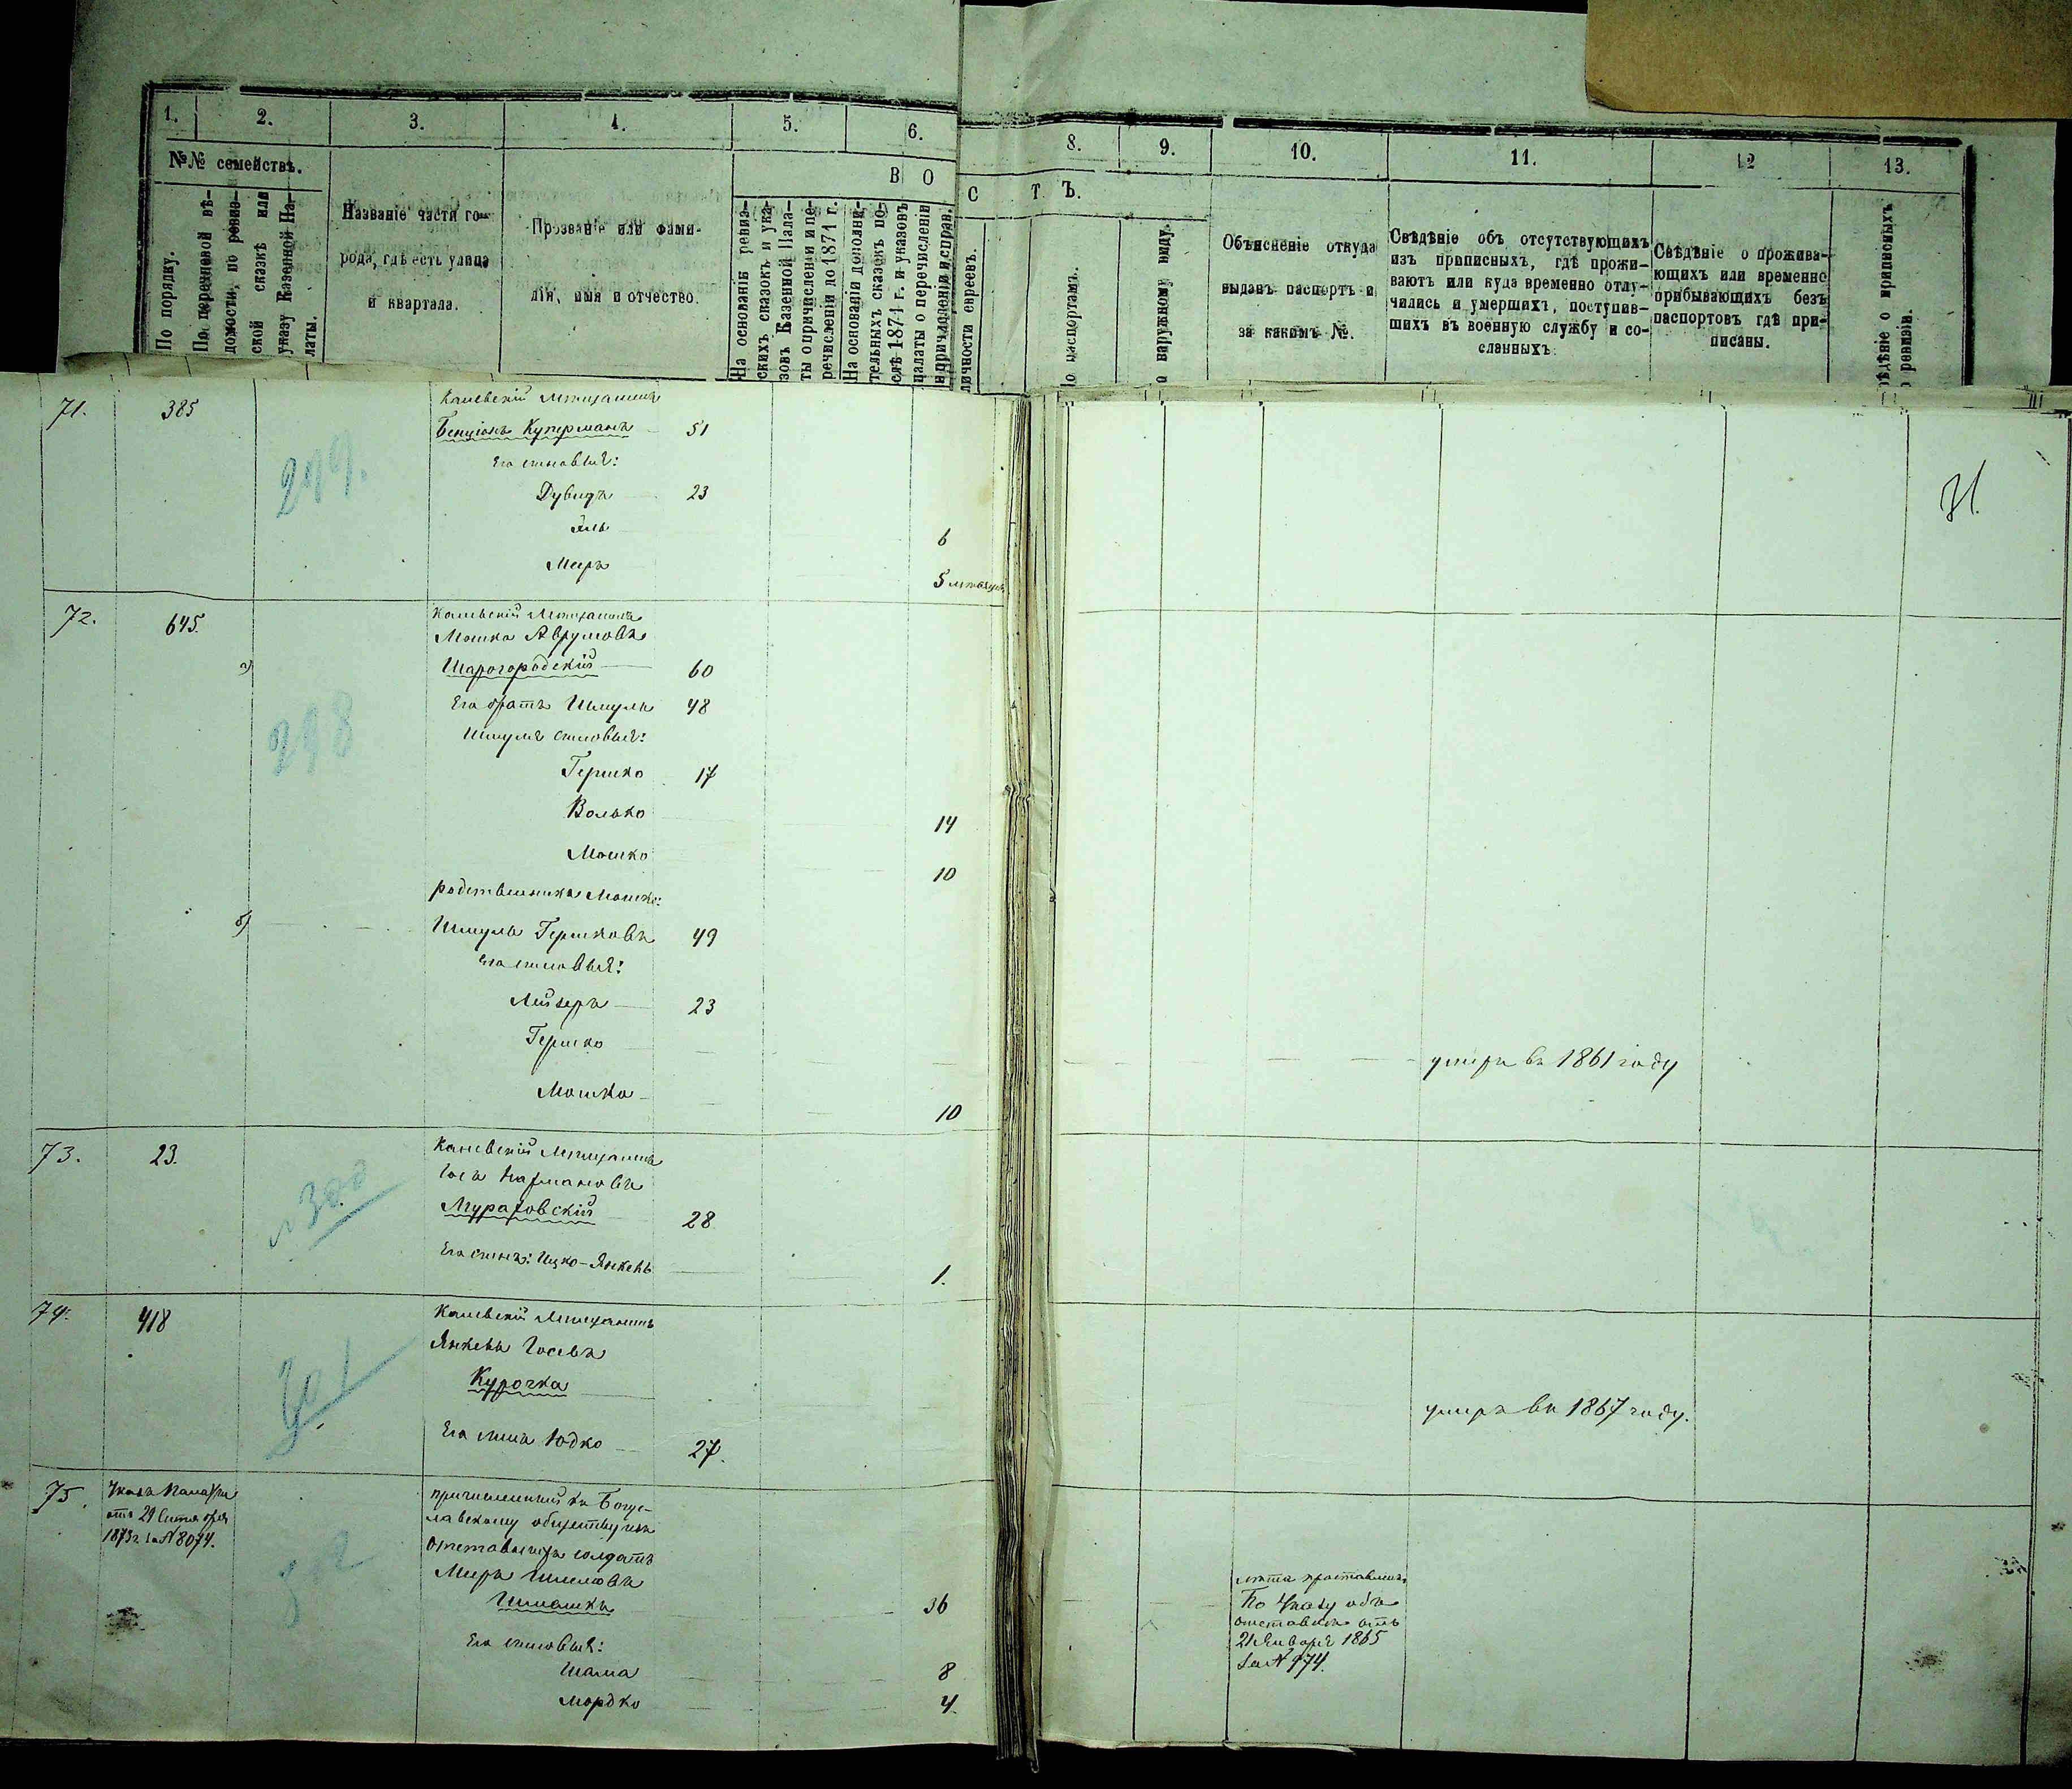 1.
2.
3.
4.
5.
6.
8.
9.
10.
11.
12
13.
№№ семействъ.
В О
С Т Ъ.
По порядку.
По перечневой вѣ-
домости, по ревиз-
ской сказкѣ или
указу Казенной Па-
латы.
Названіе части го-
рода, гдѣ есть улица
и квартала.
Прозваніе или фами-
лія, имя и отчество.
На основаніи ревиз-
скихъ сказокъ и ука-
зовъ Казенной Пала-
ты о причисленіи и пе-
речисленіи до 1874 г.
На основаніи дополни-
тельныхъ сказокъ по-
слѣ 1874 г. и указовъ
палаты о перечисленіи
и причисленіи и справ.
личности евреевъ.
по паспортамъ.
по наружному виду.
Объясненіе откуда
выданъ паспортъ и
за какимъ №.
Свѣдѣніе объ отсутствующихъ
изъ приписныхъ, гдѣ прожи-
ваютъ или куда временно отлу-
чились и умершихъ, поступив-
шихъ въ военную службу и со-
сланныхъ.
Свѣдѣніе о прожива-
ющихъ или временно
прибывающихъ безъ
паспортовъ гдѣ при-
писаны.
Свѣдѣніе о приписныхъ
по ревизіи.
71. 385 Каневскій Мѣщанинъ
299.
Бенціонъ Куперманъ 51
Его сыновья:
Дувидъ 23
6
Меиръ 5
31.
72. 645. Каневскій Мѣщанинъ
Мошко Аврумовъ
а) Шарогородскій 60
298
Его братъ Шмуль 48
Шмуля сыновья:
Гершко 17
Волько 14
Мошко 10
родственникъ Мошки:
б) Шмуль Гершковъ 49
Его сыновья:
Лейзеръ 23
Гершко умеръ въ 1861 году
Мошко 10
73. 23. Каневскій Мѣщанинъ
300
Мураховскій 28
Его сынъ: Ицко-Янкель 1.
74. 418 Каневскій Мѣщанинъ
301
Янкель Іосевъ
Курочка умеръ въ 1867 году.
Его сынъ Юдко 27.
75. Указъ Палаты
отъ 29 Сентября
1873 г. за № 8074.
302
причисленный къ Богус-
лавскому обществу изъ
отставныхъ солдатъ
Меиръ
36
Его сыновья:
Шама 8
Мордко 4.
лѣта проставлены
По Указу объ
отставкѣ отъ
21 Января 1865
за № 974.